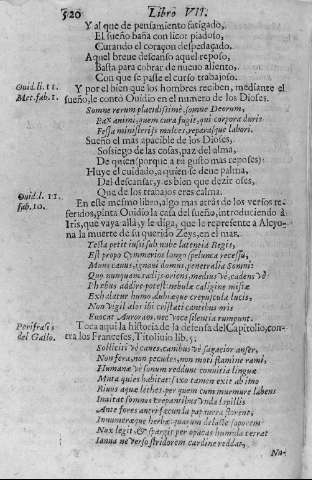 520 Libro VII.
Y al que de pensamiento fatigado,
El sueño baña con licor piadoso,
Curando el coraçon despedaçado.
Aquel breue descanso aquel reposo,
Basta para cobrar de nueuo aliento,
Con que se passe el curso trabajoso.
Ouid. li. 11. Met. fab. 1.
Y por el bien que los hombres reciben, mediante el
sueño, le contò Ouidio en el numero de los Dioses.
Somne rerum placidissime, somne Deorum,
Pax animi, quem cura fugit, qui corpora duris
Fessa ministerijs mulces, reparasque labori.
Sueño el mas apacible de los Dioses,
Sossiego de las cosas, paz del alma,
De quien (porque a tu gusto mas reposes)
Huye el cuidado, a quien se deue palma,
Dal descansar, y es bien que dezir oses,
Que de los trabajos eres calma.
Ouid. l. 11. fab. 10.
En este mesmo libro, algo mas atràs de los versos referidos,
pinta Ouidio la casa del sueño, introduciendo à
Iris, que vaya allà, y le diga, que le represente a Alcyona
la muerte de su querido Zeys, en el mar.
Tecta petit iussi sub nube latentia Regis,
Est propè Cymmerios longo spelunca recessu,
Mons cauus, ignaui domus, penetralia Somni:
Quo nunquam radijs oriens, mediusvè, cadensvè
Phœbus addire potest: nebulæ caligine mistæ
Exhalatur humo dubiæque crepuscula lucis,
Non vigil ales ibi cristati cantibus oris
Euocat Auroram, nec voce silentia rumpunt.
Perifrasis del Gallo.
Toca aqui la historia de la defensa del Capitolio, contra
los Franceses, Titoliuio lib. 5.
Solliciti vè canes, canibus vè sagacior anser,
Non fera, non pecudes, non moti flamine rami,
Humanæ vè sonum reddunt conuitia linguæ
Muta quies habitat: saxo tamen exit ab imo
Riuus aquæ lethes, per quem cum murmure labens
Inuitat somnos crepantibus vnda lapillis
Ante fores antri fecunda papauera florent,
Innumeræque herbæ: quarum de lacte soporem
Nox legit, & spargit per opacas humida terras
Ianua ne verso stridorem cardine reddat,